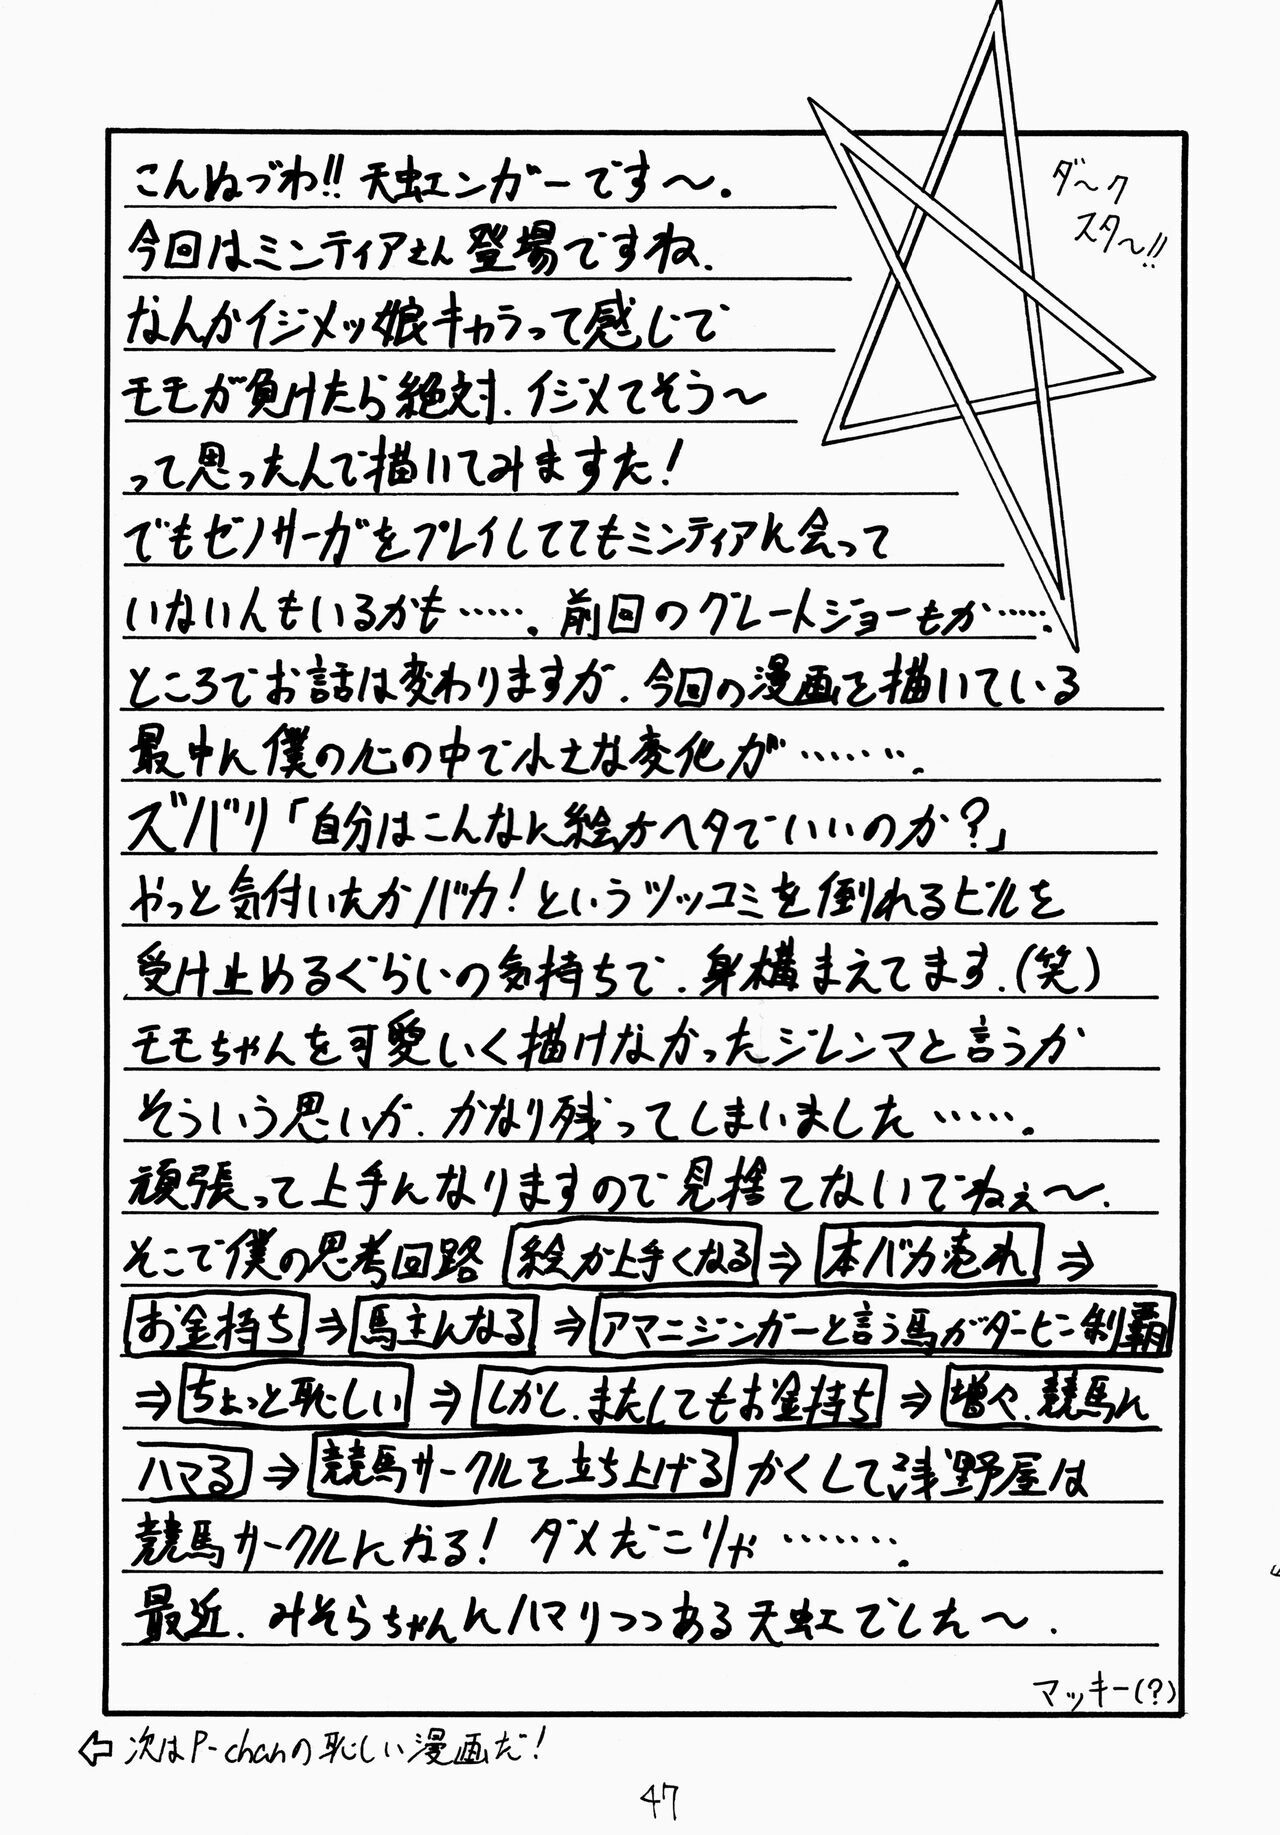 ダ〜ク
スタ〜!!
こんぬづわ!!天虹ンガーです〜.
今回はミンティアさん登場ですね.
なんかイジメッ娘キャラって感じで
モモが負けたら絶対.イジメてそう〜
って思ったんで描いてみますた!
でもゼノサーガをプレイしててもミンティアに会って
いない人もいるかも……. 前回のグレートジョーもか…….
ところでお話は変わりますが.今回の漫画を描いている
最中に僕の心の中で小さな変化が………….
ズバリ「自分はこんなに絵がヘタでいいのか?」
やっと気付いたかバカ!というツッコミを倒れるビルを
受け止めるぐらいの気持ちで.身構まえてます.(笑)
モモちゃんを可愛いく描けなかったジレンマと言うか
そういう思いが.かなり残ってしまいました…….
頑張って上手になりますので見捨てないでねぇ〜.
そこで僕の思考回路 絵が上手くなる⇒本バカ売れ⇒
お金持ち⇒馬主になる⇒アマニジンガーと言う馬がダービー制覇
⇒ちょっと恥しい⇒しかし.またしてもお金持ち⇒増々.競馬に
ハマる⇒競馬サークルを立ち上げる かくして浅野屋は
競馬サークルになる! ダメだこりゃ………….
最近.みそらちゃんにハマりつつある天虹でした〜.
マッキー(?)
⇦次はP-chanの恥しい漫画だ!
47